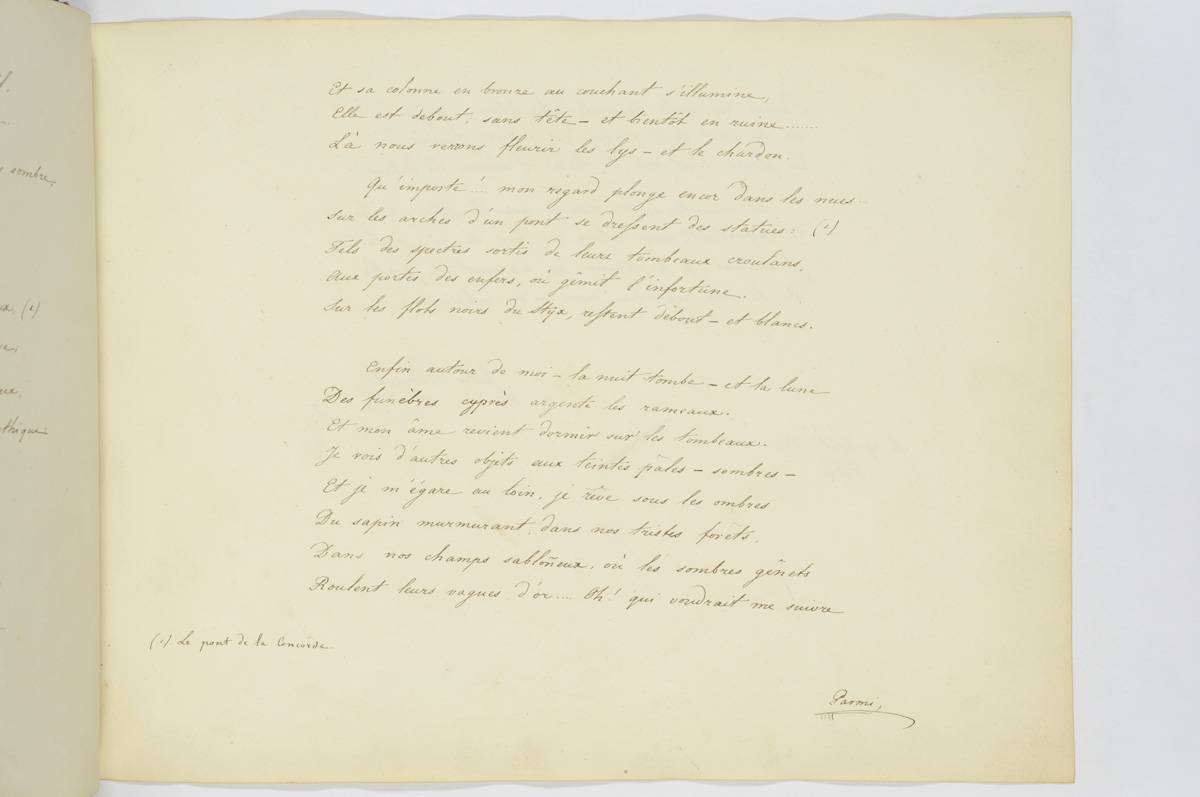 l,
sombre,
ux, (1)
ue,
thique
Et sa colonne en bronze au couchant s'illumine,
Elle est debout, sans tête – et bientôt en ruine......
Là nous verons fleurir les lys – et le chardon.
Qu'importe!... mon regard plonge encor' dans les nues..
Sur les arches d'un pont se dressent des statues: (1)
Tels des spectres sortis de leurs tombeaux croulans,
Aux portes des enfers, où gémit l'infortune.
Sur les flots noirs du Styx, restent debout – et blancs.
Enfin autour de moi – la nuit tombe – et la lune
Des funèbres cyprès argente les rameaux.
Et mon âme revient dormir sur les tombeaux.
Je vois d'autres objets aux teintes pâles – sombres –
Et je m'égare au loin, je rêve sous les ombres
Du sapin murmurant, dans nos tristes forêts,
Dans nos champs sabloneux, où les sombres gênets
Roulent leurs vagues d'or.... Oh! qui voudrait me suivre
(1) Le pont de la Concorde.
Parmi,